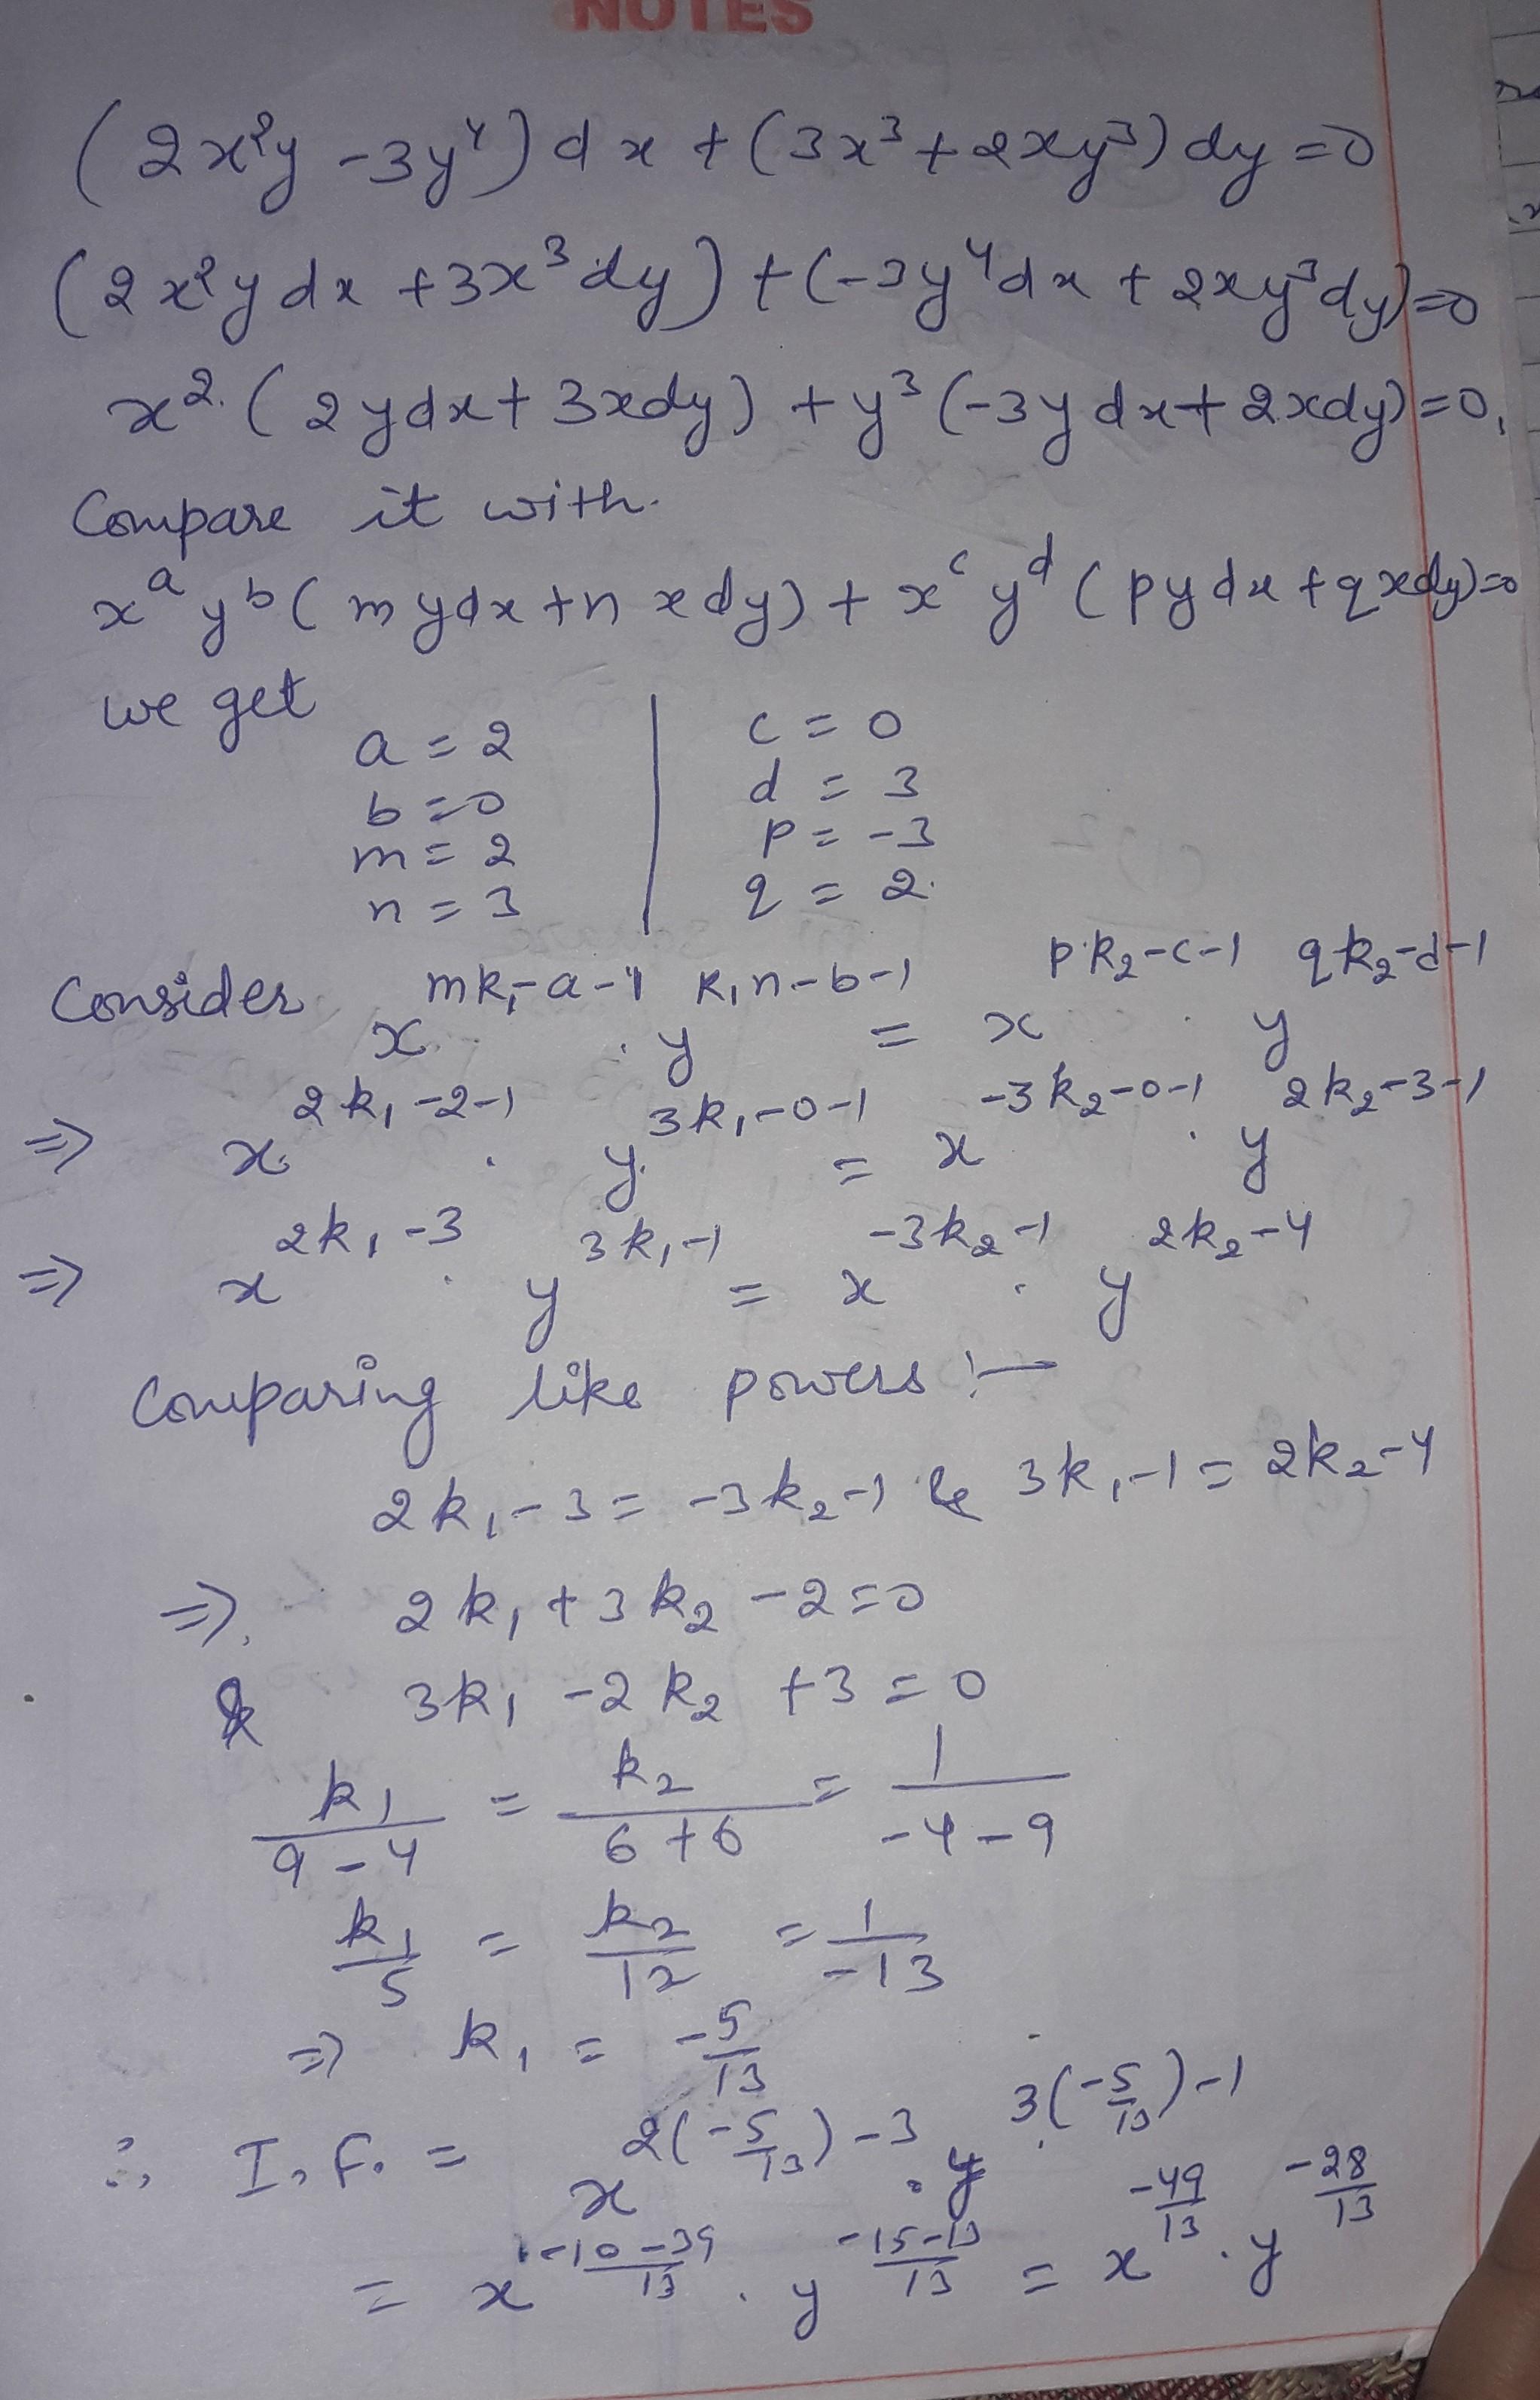 NOTES
(2x²y - 3y⁴) dx + (3x³ + 2xy³) dy = 0
(2x²y dx + 3x³ dy) + (-3y⁴ dx + 2xy³ dy) = 0
x² (2y dx + 3x dy) + y³ (-3y dx + 2x dy) = 0,
Compare it with.
x^a y^b (m y dx + n x dy) + x^c y^d (p y dx + q x dy) = 0
we get
a = 2 | c = 0
b = 0 | d = 3
m = 2 | p = -3
n = 3 | q = 2.
Consider x^(mk₁-a-1) . y^(k₁n-b-1) = x^(pk₂-c-1) . y^(qk₂-d-1)
⇒ x^(2k₁-2-1) . y^(3k₁-0-1) = x^(-3k₂-0-1) . y^(2k₂-3-1)
⇒ x^(2k₁-3) . y^(3k₁-1) = x^(-3k₂-1) . y^(2k₂-4)
Comparing like powers :-
2k₁ - 3 = -3k₂ - 1 & 3k₁ - 1 = 2k₂ - 4
⇒ 2k₁ + 3k₂ - 2 = 0
& 3k₁ - 2k₂ + 3 = 0
k₁/(9-4) = k₂/(6+6) = 1/(-4-9)
k₁/5 = k₂/12 = 1/-13
⇒ k₁ = -5/13
∴ I.F. = x^(2(-5/13)-3) . y^(3(-5/13)-1)
= x^((-10-39)/13) . y^((-15-13)/13) = x^(-49/13) . y^(-28/13)